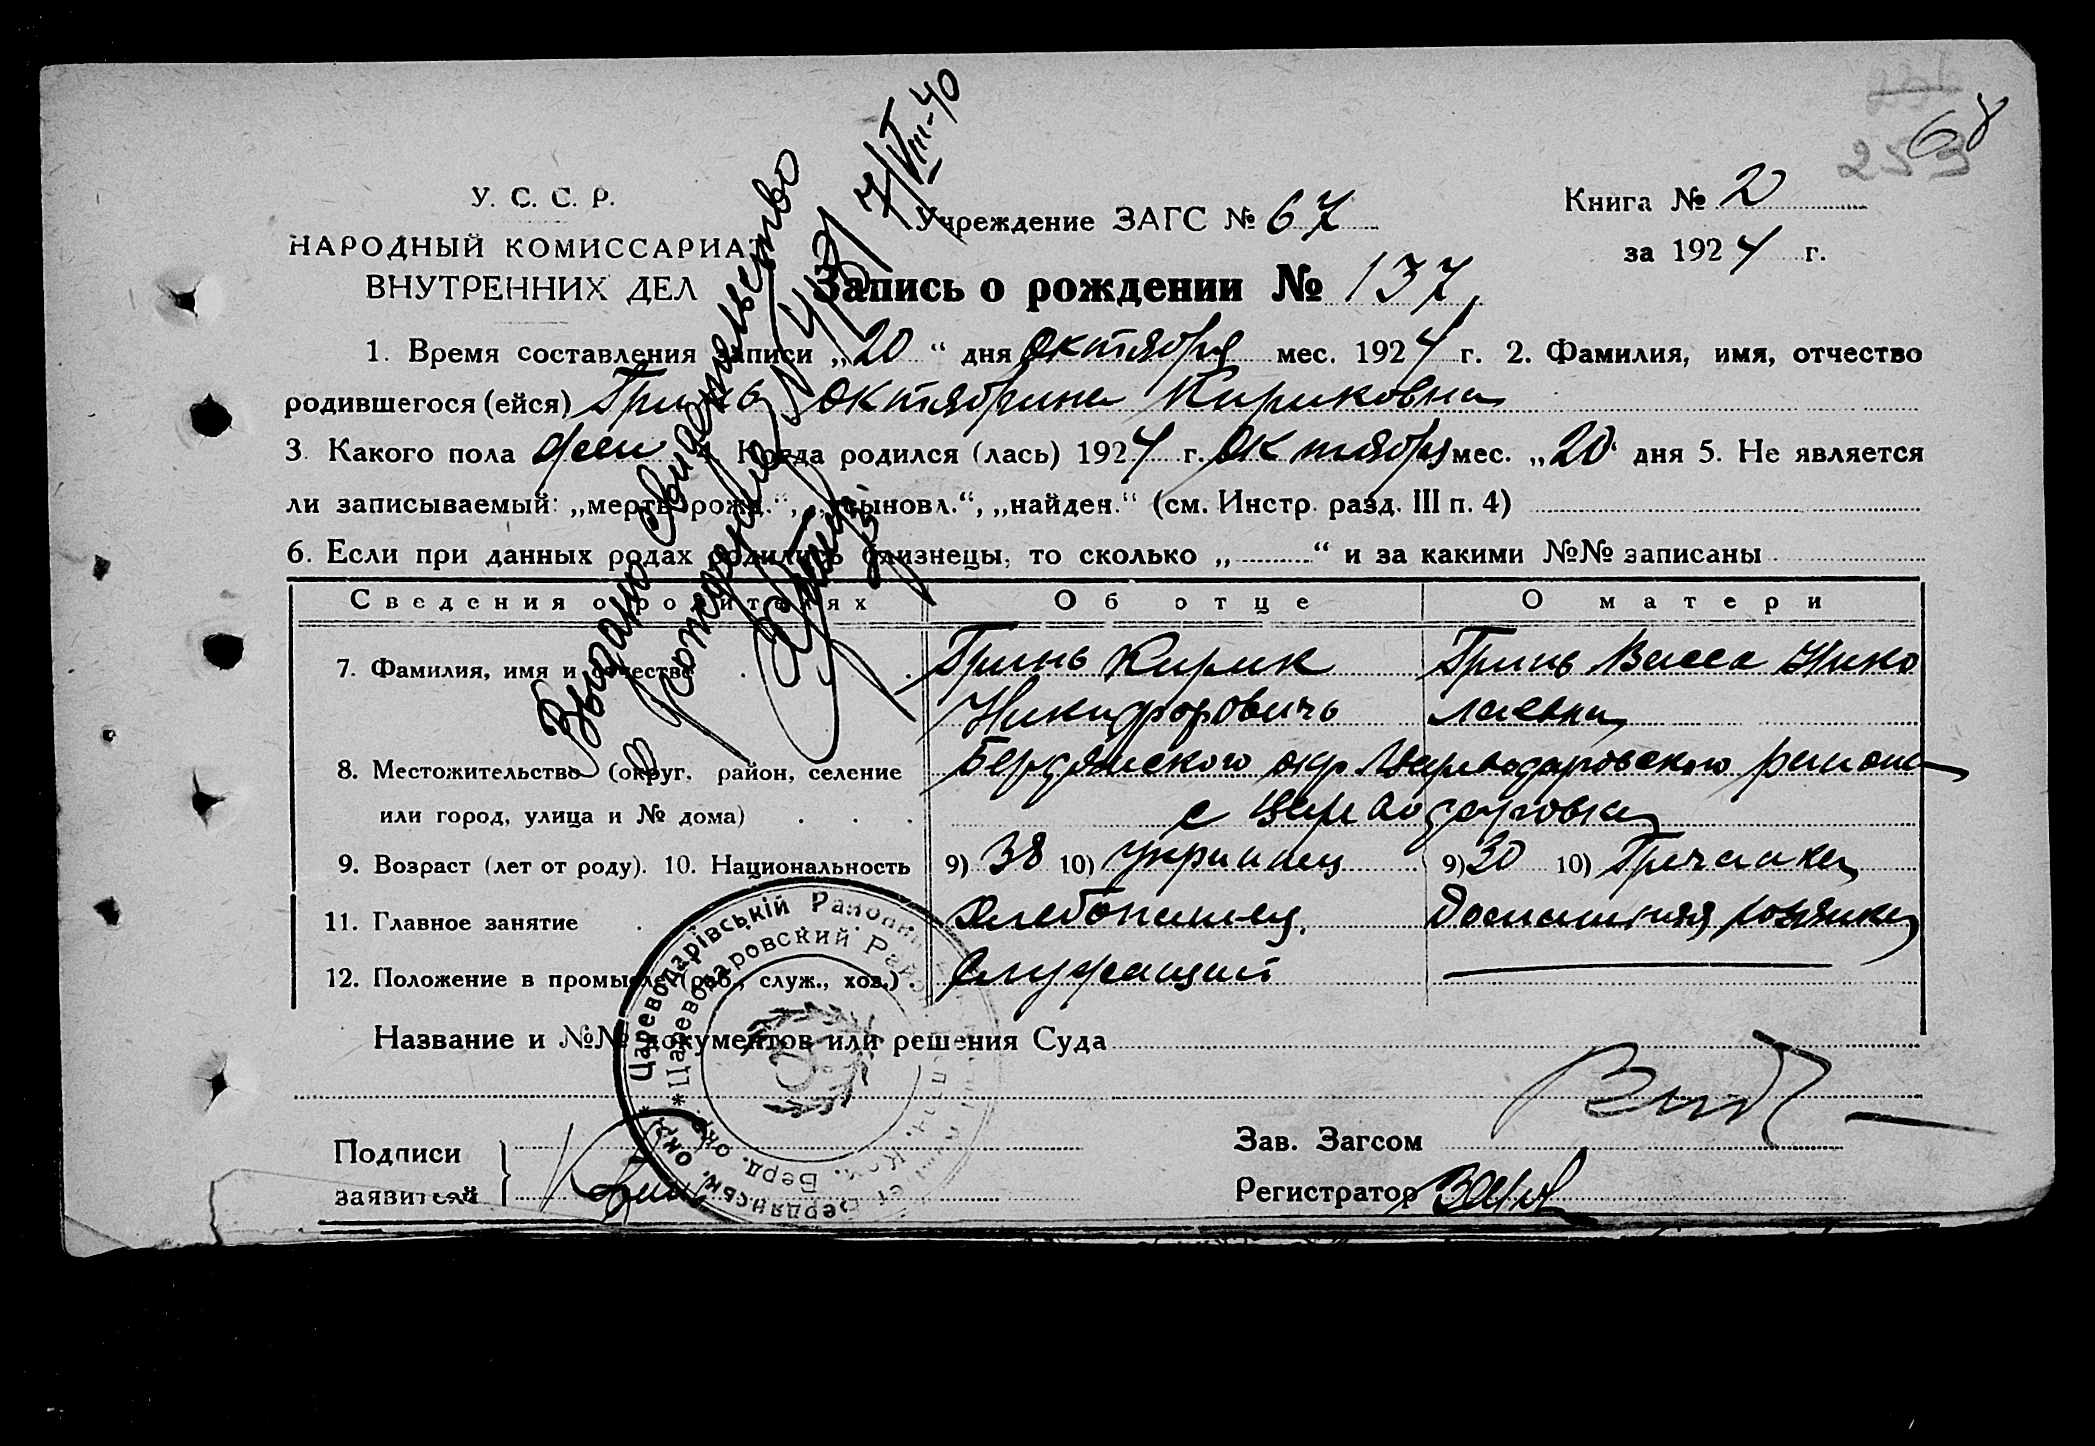 253
68
У. С. С. Р.
НАРОДНЫЙ КОМИССАРИАТ
ВНУТРЕННИХ ДЕЛ
Учреждение ЗАГС № 67
Книга № 2
за 1924 г.
Запись о рождении № 137
1. Время составления записи „20“ дня Октября мес. 1924 г. 2. Фамилия, имя, отчество
родившегося (ейся) Гринь Октябрина Кириковна
3. Какого пола жен Когда родился (лась) 1924 г. Октября мес. „20“ дня 5. Не является
ли записываемый: „мертворожд.“, „усыновл.“, „найден.“ (см. Инстр. разд. III п. 4)
6. Если при данных родах родились близнецы, то сколько „ “ и за какими №№ записаны
Сведения о родителях Об отце О матери
7. Фамилия, имя и отчество Гринь Кирик Гринь Васса Нико
Никифоровичь лаевна
8. Местожительство (округ, район, селение Бердянского окр Цареводаровского района
или город, улица и № дома) с Цареводаровка
9. Возраст (лет от роду). 10. Национальность 9) 38 10) украинец 9) 30 10) Гречанка
11. Главное занятие Хлебопашец, Домашняя хозяйка
12. Положение в промысле (раб., служ., хоз.) Служащий
Название и №№ документов или решения Суда
Подписи
заявителей
Зав. Загсом
Регистратор
Выдано свидетельство
о рождении
7/VIII-40
Цареводарівській Районний
Бердянськ. окр.
*Цареводаровский Район
Исполн. Ком. Берд. окр.*